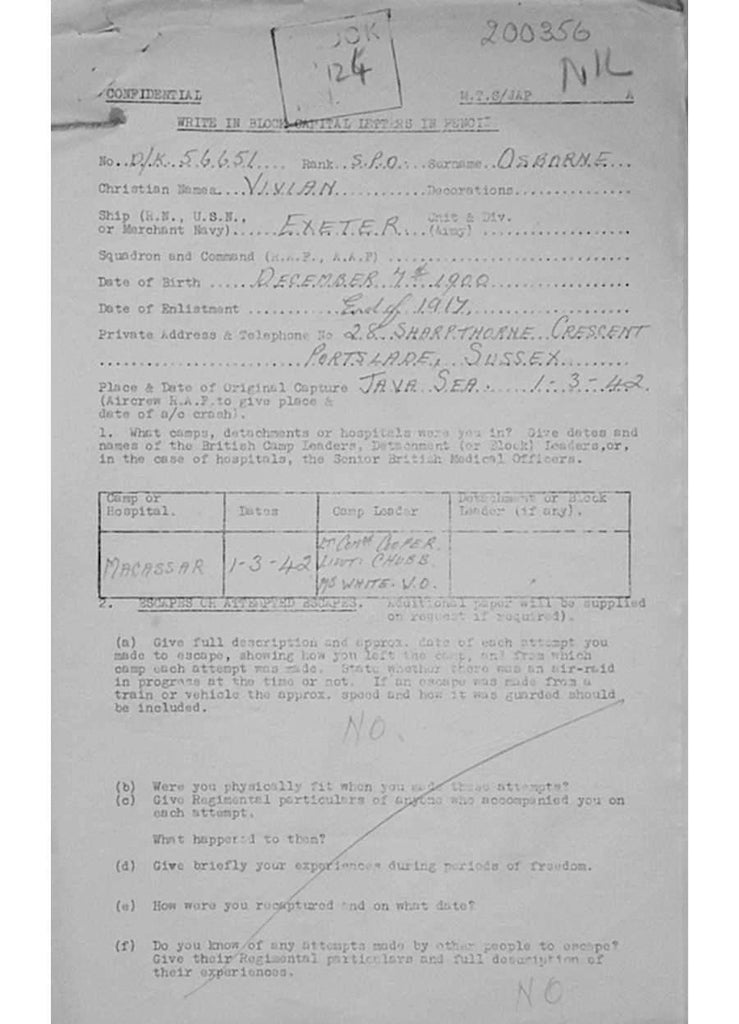 OK
124
200356
NK
CONFIDENTIAL M.T.S/JAP A
WRITE IN BLOCK CAPITAL LETTERS IN PENCIL
No..D/K 56651... Rank..S.P.O... Surname..OSBORNE...
Christian Names...VIVIAN............Decorations...............
Ship (R.N., U.S.N., Unit & Div.
or Merchant Navy).....EXETER (Army) ...................
Squadron and Command (R.A.F., A.A.F) ...............................
Date of Birth .....DECEMBER 7th 1900..............
Date of Enlistment ...........End of 1917.....................
Private Address & Telephone No 28 SHARPTHORNE CRESCENT
....................PORTSLADE, SUSSEX.........
Place & Date of Original Capture JAVA SEA. 1-3-42.
(Aircrew R.A.F.to give place &
date of a/c crash).
1. What camps, detachments or hospitals were you in? Give dates and
names of the British Camp Leaders, Detachment (or Block) Leaders,or,
in the case of hospitals, the Senior British Medical Officers.
Camp or Hospital. Dates Camp Leader Detachment or Block Leader (if any).
MACASSAR 1-3-42 LT COMM COOPER.
LIEUT: CHUBB
MS WHITE. V.O.
2. ESCAPES OR ATTEMPTED ESCAPES. Additional paper will be supplied
on request if required).
(a) Give full description and approx. date of each attempt you
made to escape, showing how you left the camp, and from which
camp each attempt was made. State whether there was an air-raid
in progress at the time or not. If an escape was made from a
train or vehicle the approx. speed and how it was guarded should
be included.
NO.
(b) Were you physically fit when you made these attempts?
(c) Give Regimental particulars of anyone who accompanied you on
each attempt.
What happened to them?
(d) Give briefly your experiences during periods of freedom.
(e) How were you recaptured and on what date?
(f) Do you know of any attempts made by other people to escape?
Give their Regimental particulars and full description of
their experiences.
NO